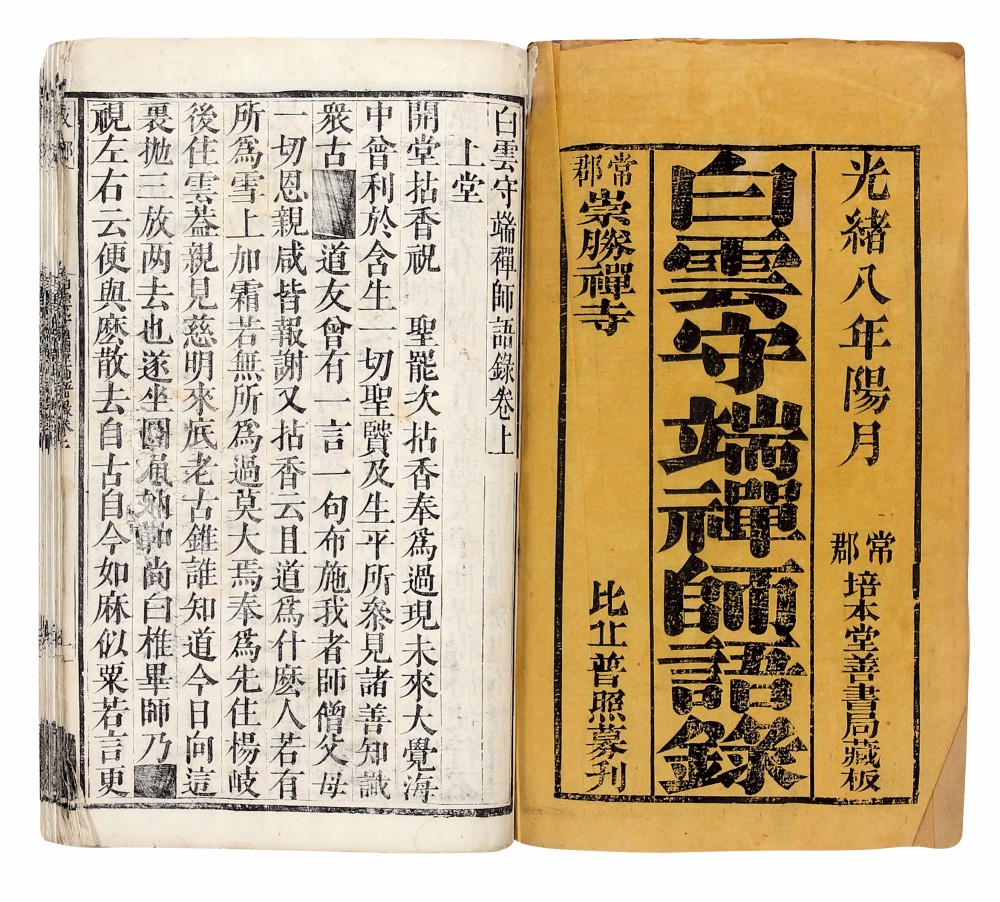 光緒八年陽月 常郡培本堂善書局藏板
白雲守端禪師語錄
常郡崇勝禪寺 比丘普照募刊
白雲守端禪師語錄卷上
上堂
開堂拈香祝 聖罷次拈香奉爲過現未來大覺海
中會利於含生一切聖賢及生平所叅見諸善知識
衆古 道友曾有一言一句布施我者師僧父母
一切恩親咸皆報謝又拈香云且道爲什麽人若有
所爲雪上加霜若無所爲過莫大焉奉爲先住楊岐
後住雲葢親見慈明來底老古錐誰知道今日向這
裏拋三放两去也遂坐 尚白椎畢師乃
視左右云便與麽散去自古自今如麻似粟若言更